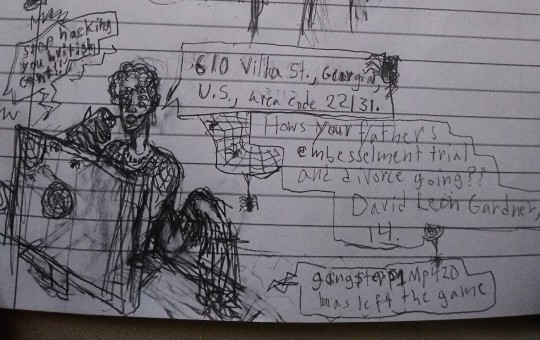 Stop hacking
you british
cant!!
610 Villa St., Georgia,
U.S., area code 22131.
Hows your fathers
embesselment trial
and divorce going??
David Leon Gardner,
14.
has left the game